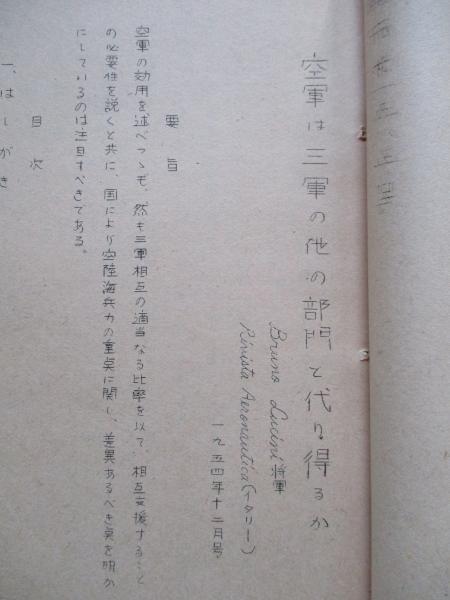 空軍は三軍の他の部門と代り得るか
Bruno Lucini 将軍
Rivista Aeronautica (イタリー)
一九五四年十二月号
要旨
空軍の効用を述べつゝも、然も三軍相互の適当なる比率を以て、相互支援すること
の必要性を説くと共に、国により空陸海兵力の重点に関し、差異あるべき点を明か
にしているのは注目すべきである。
目次
一、はしがき